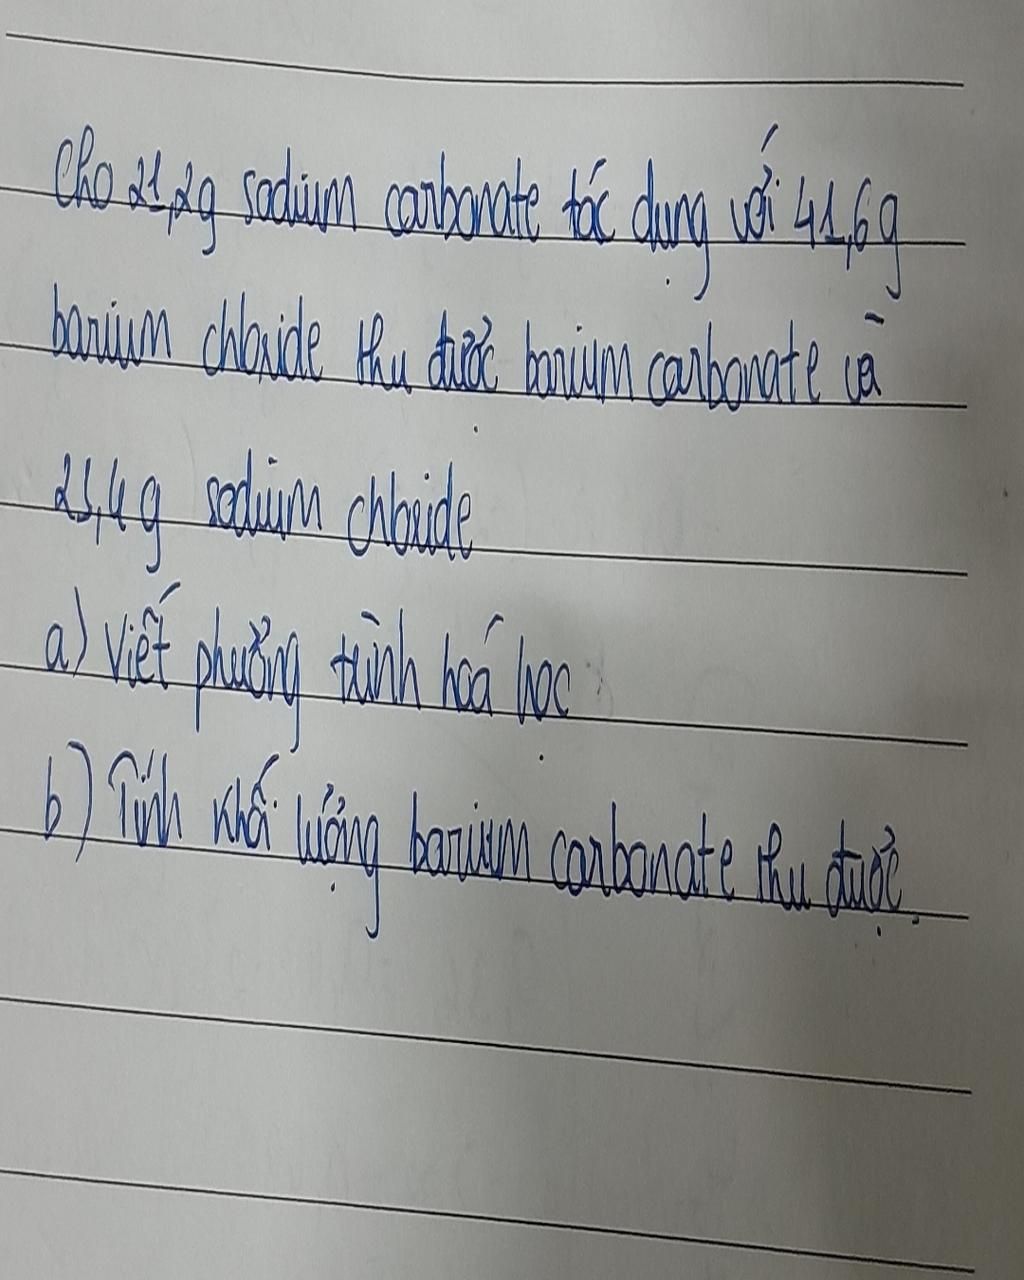 Cho 21,2g sodium carbonate tác dụng với 41,6g
barium chloride thu được barium carbonate và
23,4g sodium chloride
a) Viết phương trình hoá học
b) Tính khối lượng barium carbonate thu được.